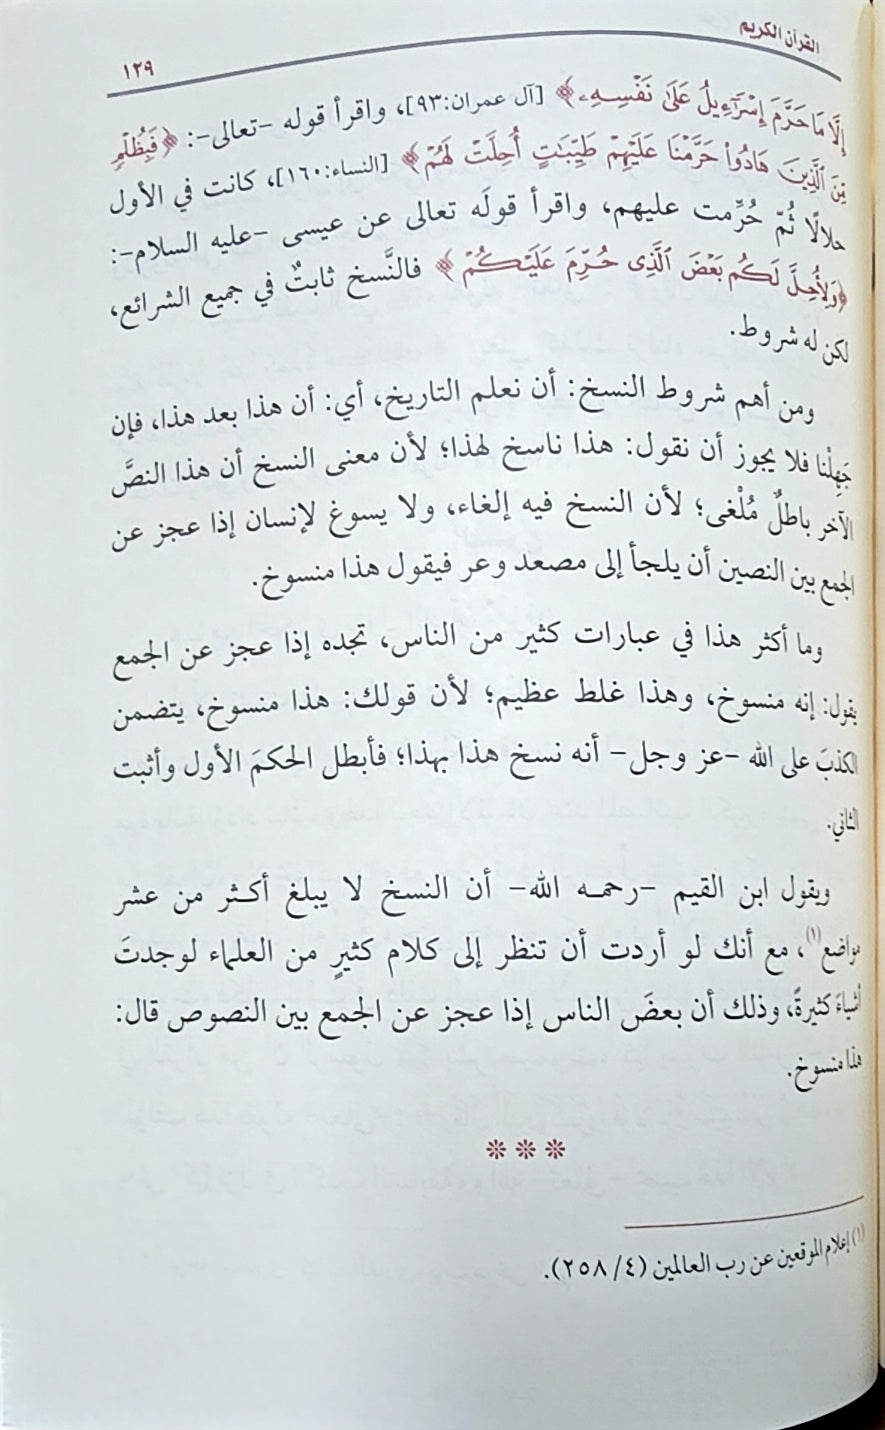 القرآن الكريم
١٢٩
إِلَّا مَا حَرَّمَ إِسْرَٰٓءِيلُ عَلَىٰ نَفْسِهِۦ﴾ [آل عمران:٩٣]، واقرأ قوله -تعالى-: ﴿فَبِظُلْمٍ
مِّنَ ٱلَّذِينَ هَادُواْ حَرَّمْنَا عَلَيْهِمْ طَيِّبَٰتٍ أُحِلَّتْ لَهُمْ﴾ [النساء:١٦٠]، كانت في الأول
حلالًا ثُمّ حُرِّمت عليهم، واقرأ قولَه تعالى عن عيسى -عليه السلام-:
﴿وَلِأُحِلَّ لَكُم بَعْضَ ٱلَّذِى حُرِّمَ عَلَيْكُمْ﴾ فالنَّسخ ثابتٌ في جميع الشرائع،
لكن له شروط.
ومن أهم شروط النسخ: أن نعلم التاريخ، أي: أن هذا بعد هذا، فإن
جَهِلْنا فلا يجوز أن نقول: هذا ناسخ لهذا؛ لأن معنى النسخ أن هذا النصَّ
الآخر باطلٌ مُلْغى؛ لأن النسخ فيه إلغاء، ولا يسوغ لإنسان إذا عجز عن
الجمع بين النصين أن يلجأ إلى مصعد وعر فيقول هذا منسوخ.
وما أكثر هذا في عبارات كثير من الناس، تجده إذا عجز عن الجمع
يقول: إنه منسوخ، وهذا غلط عظيم؛ لأن قولك: هذا منسوخ، يتضمن
الكذبَ على الله -عز وجل- أنه نسخ هذا بهذا؛ فأبطل الحكمَ الأول وأثبت
الثاني.
ويقول ابن القيم -رحمه الله- أن النسخ لا يبلغ أكثر من عشر
مواضع(١)، مع أنك لو أردت أن تنظر إلى كلام كثيرٍ من العلماء لوجدتَ
أشياءَ كثيرةً، وذلك أن بعضَ الناس إذا عجز عن الجمع بين النصوص قال:
هذا منسوخ.
***
(١) إعلام الموقعين عن رب العالمين (٤/ ٢٥٨).